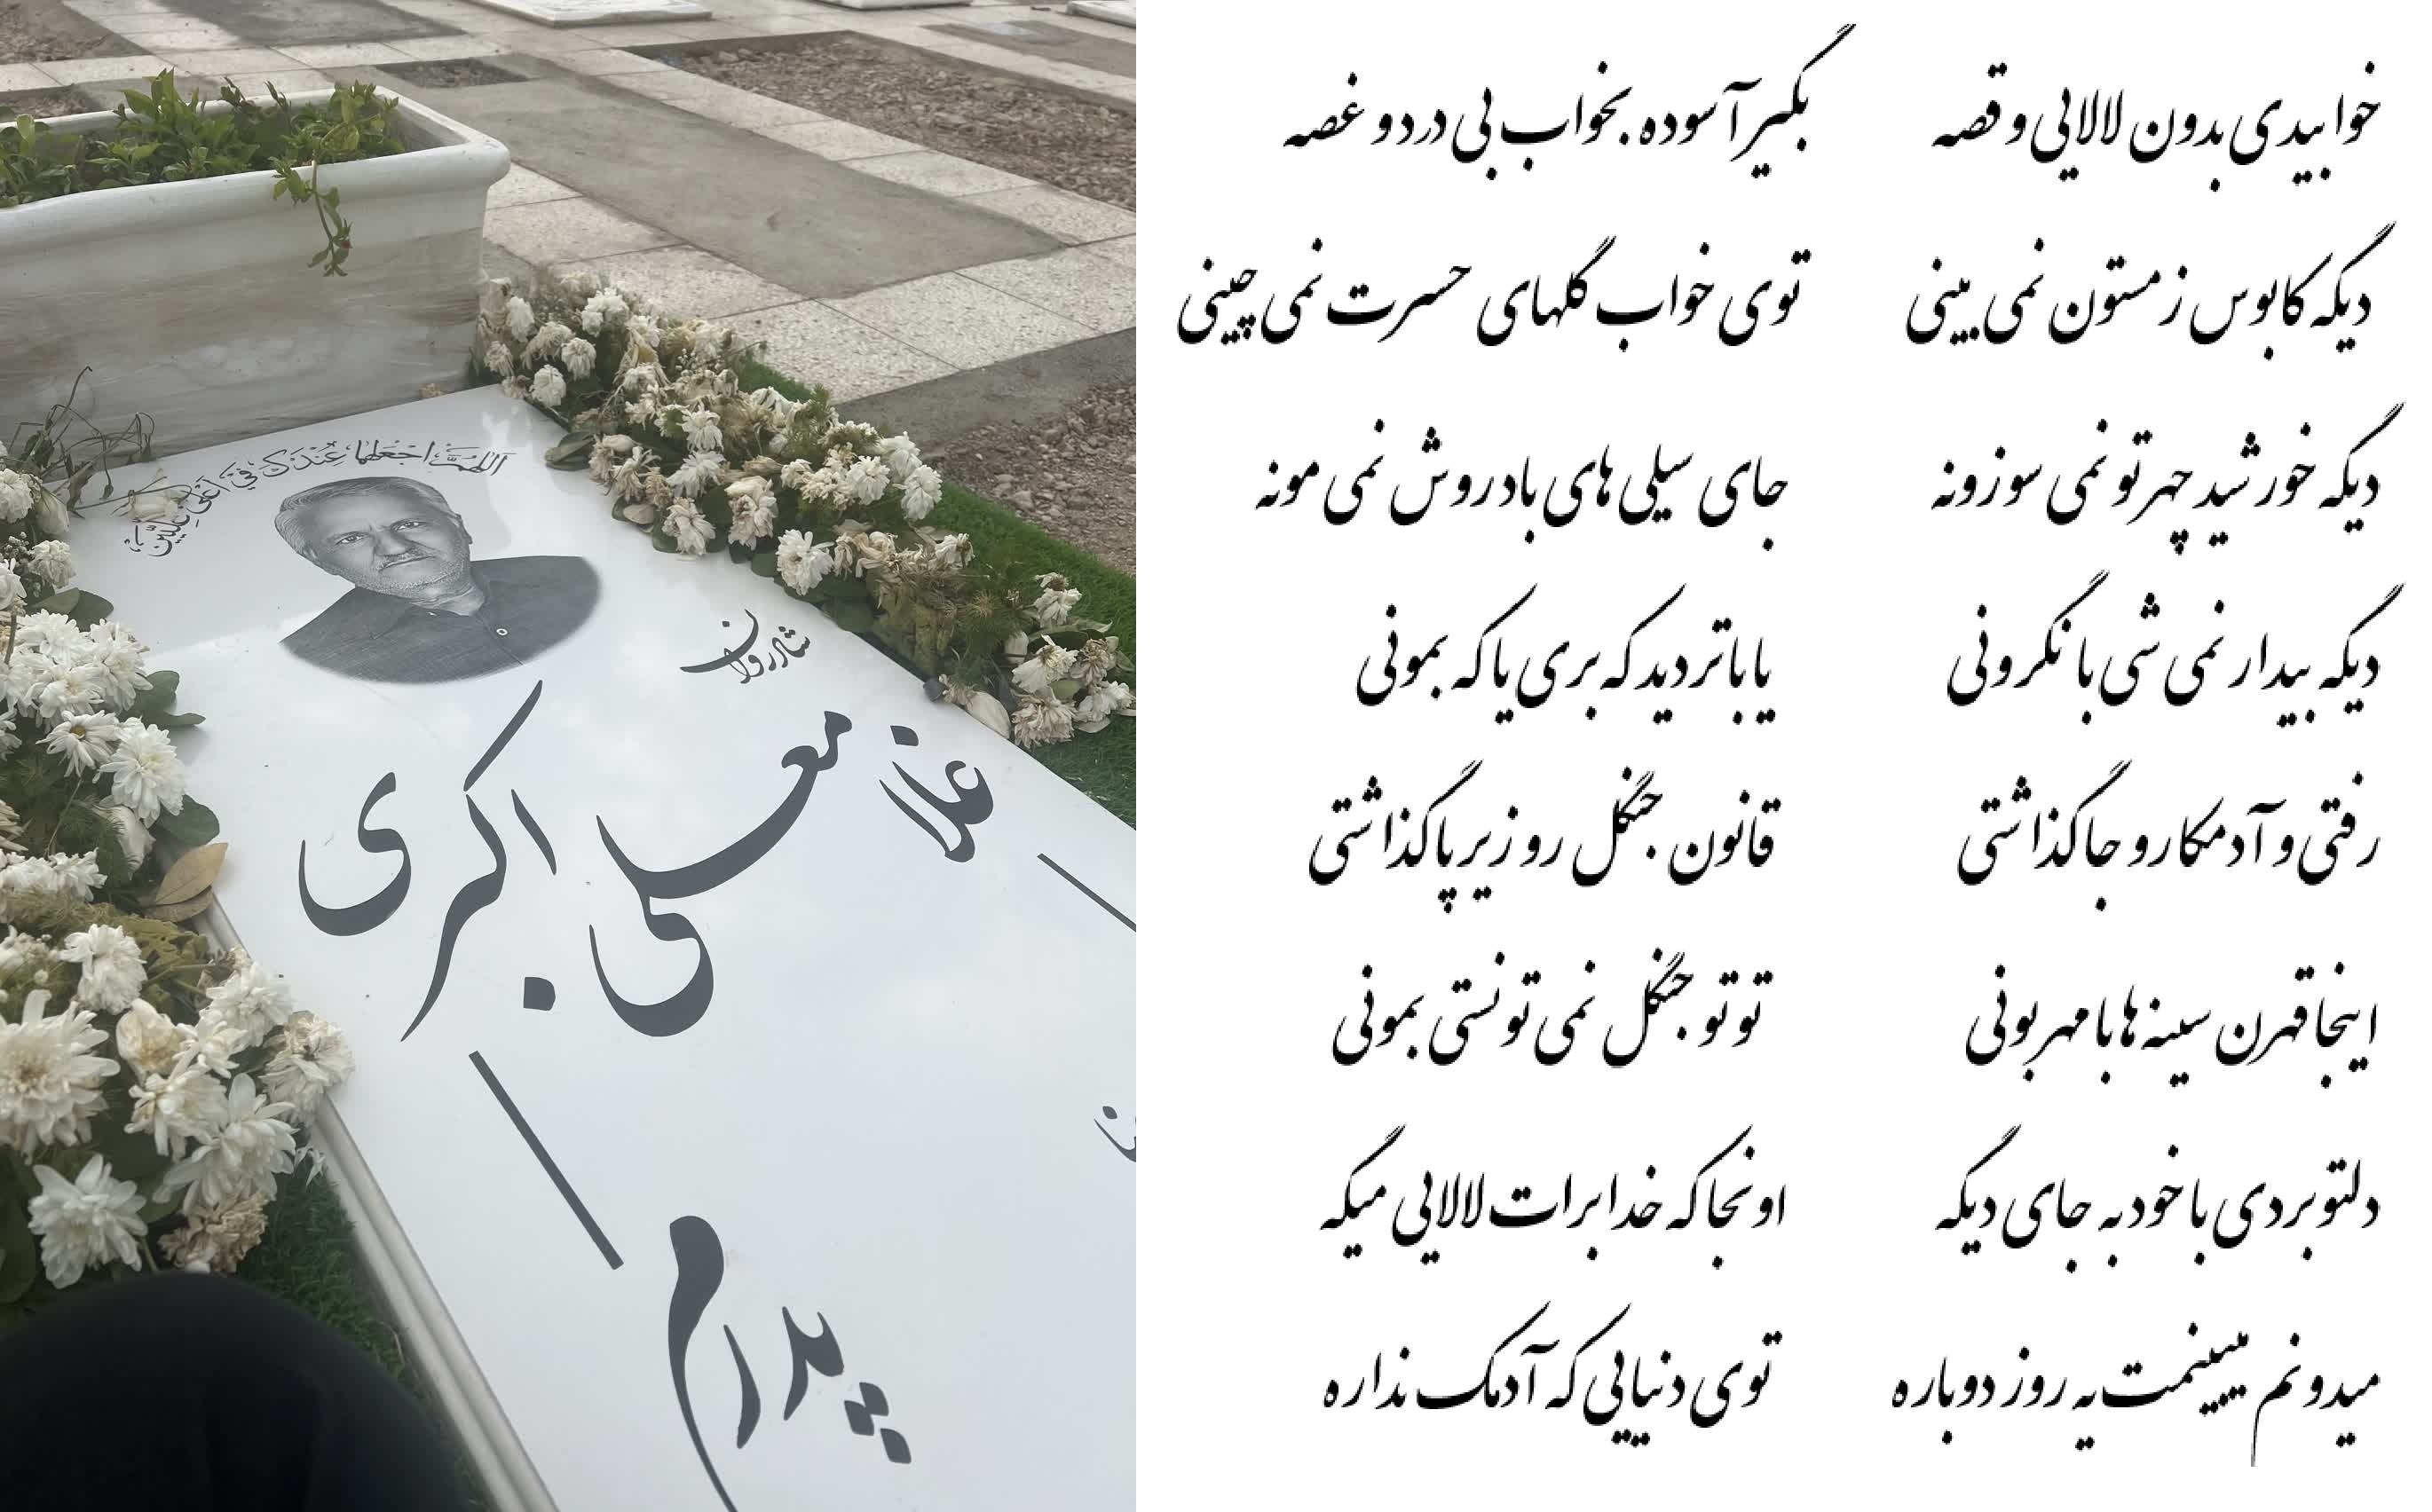 اللهم اجعلها عندک فی اعلی علیین
شادروان
غلامعلی اکبری
پدرم
خوابیدی بدون لالایی و قصه بگیر آسوده بخواب بی درد و غصه
دیگه کابوس زمستون نمی بینی توی خواب گلهای حسرت نمی چینی
دیگه خورشید چهرتو نمی سوزونه جای سیلی های باد روش نمی مونه
دیگه بیدار نمی شی با نگرونی یا با تردید که بری یا که بمونی
رفتی و آدمکا رو جا گذاشتی قانون جنگل رو زیر پا گذاشتی
اینجا قهرن سینه ها با مهربونی تو تو جنگل نمی تونستی بمونی
دلتو بردی با خود به جای دیگه اونجا که خدا برات لالایی میگه
میدونم میبینمت یه روز دوباره توی دنیایی که آدمک نداره